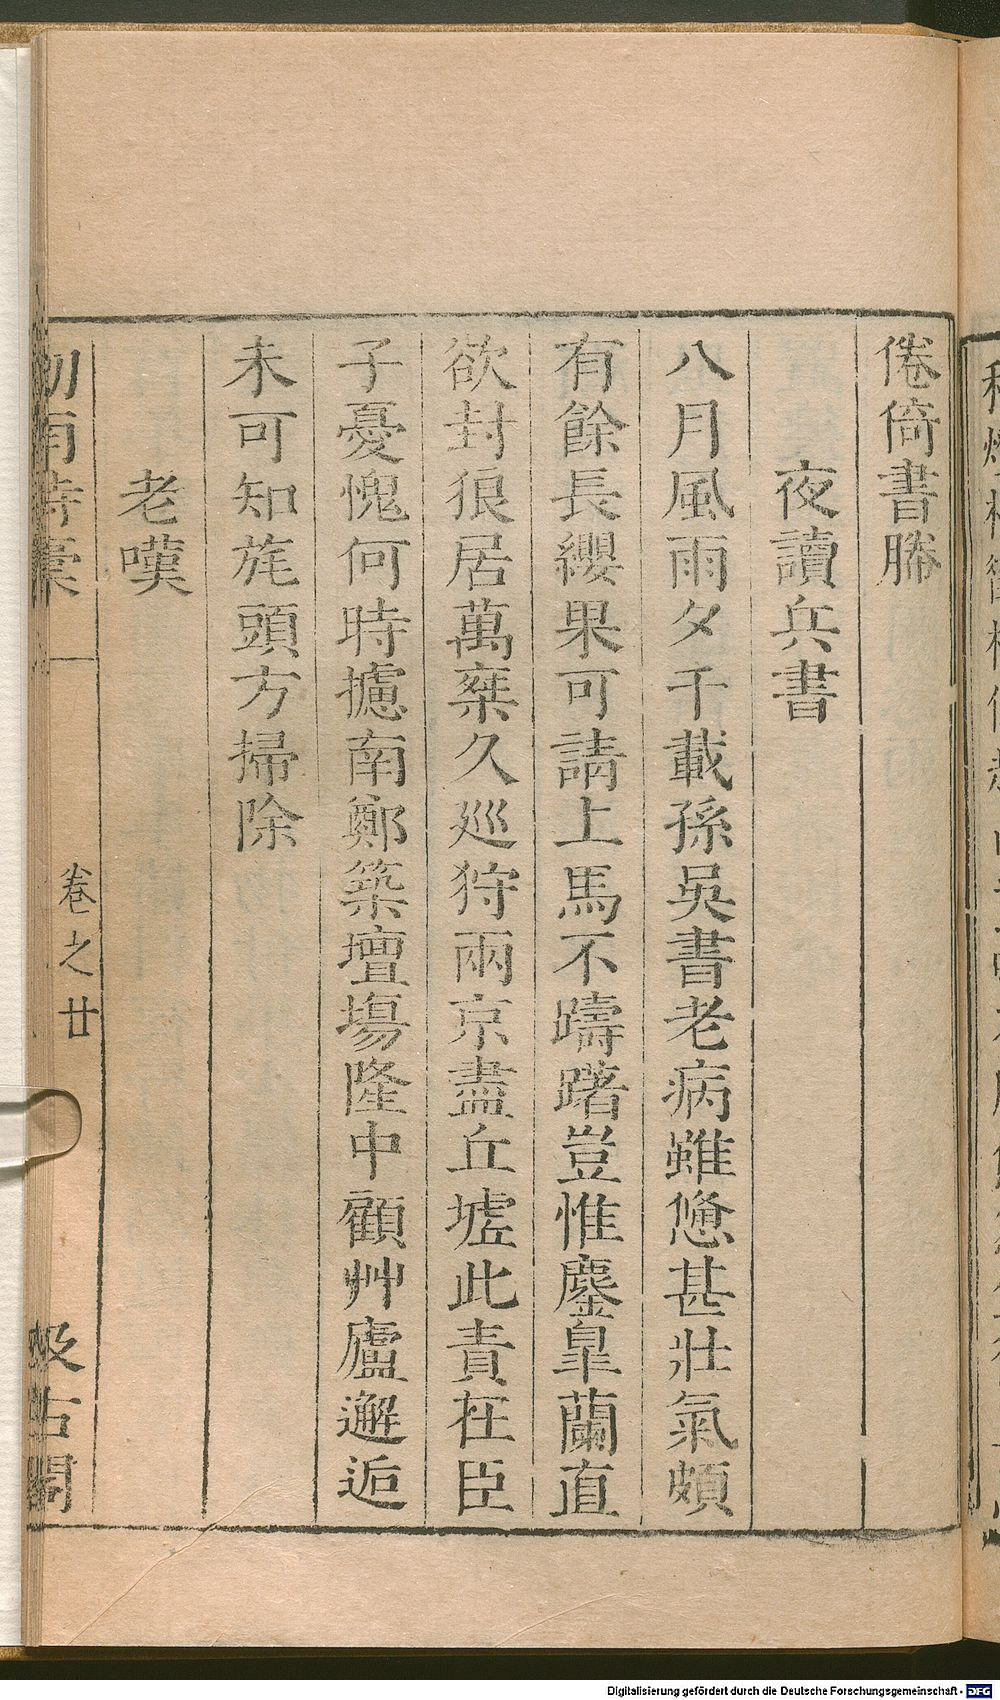 倦倚書牀
夜讀兵書
八月風雨夕千載孫吳書老病雖憊甚壯氣頗
有餘長纓果可請上馬不躊躇豈惟鏖皐蘭直
欲封狼居萬乘久巡狩兩京盡丘墟此責在臣
子憂愧何時攄南鄭築壇塲隆中顧艸廬邂逅
未可知旄頭方掃除
老嘆
卷之廿
汲古閣
Digitalisierung gefördert durch die Deutsche Forschungsgemeinschaft - DFG